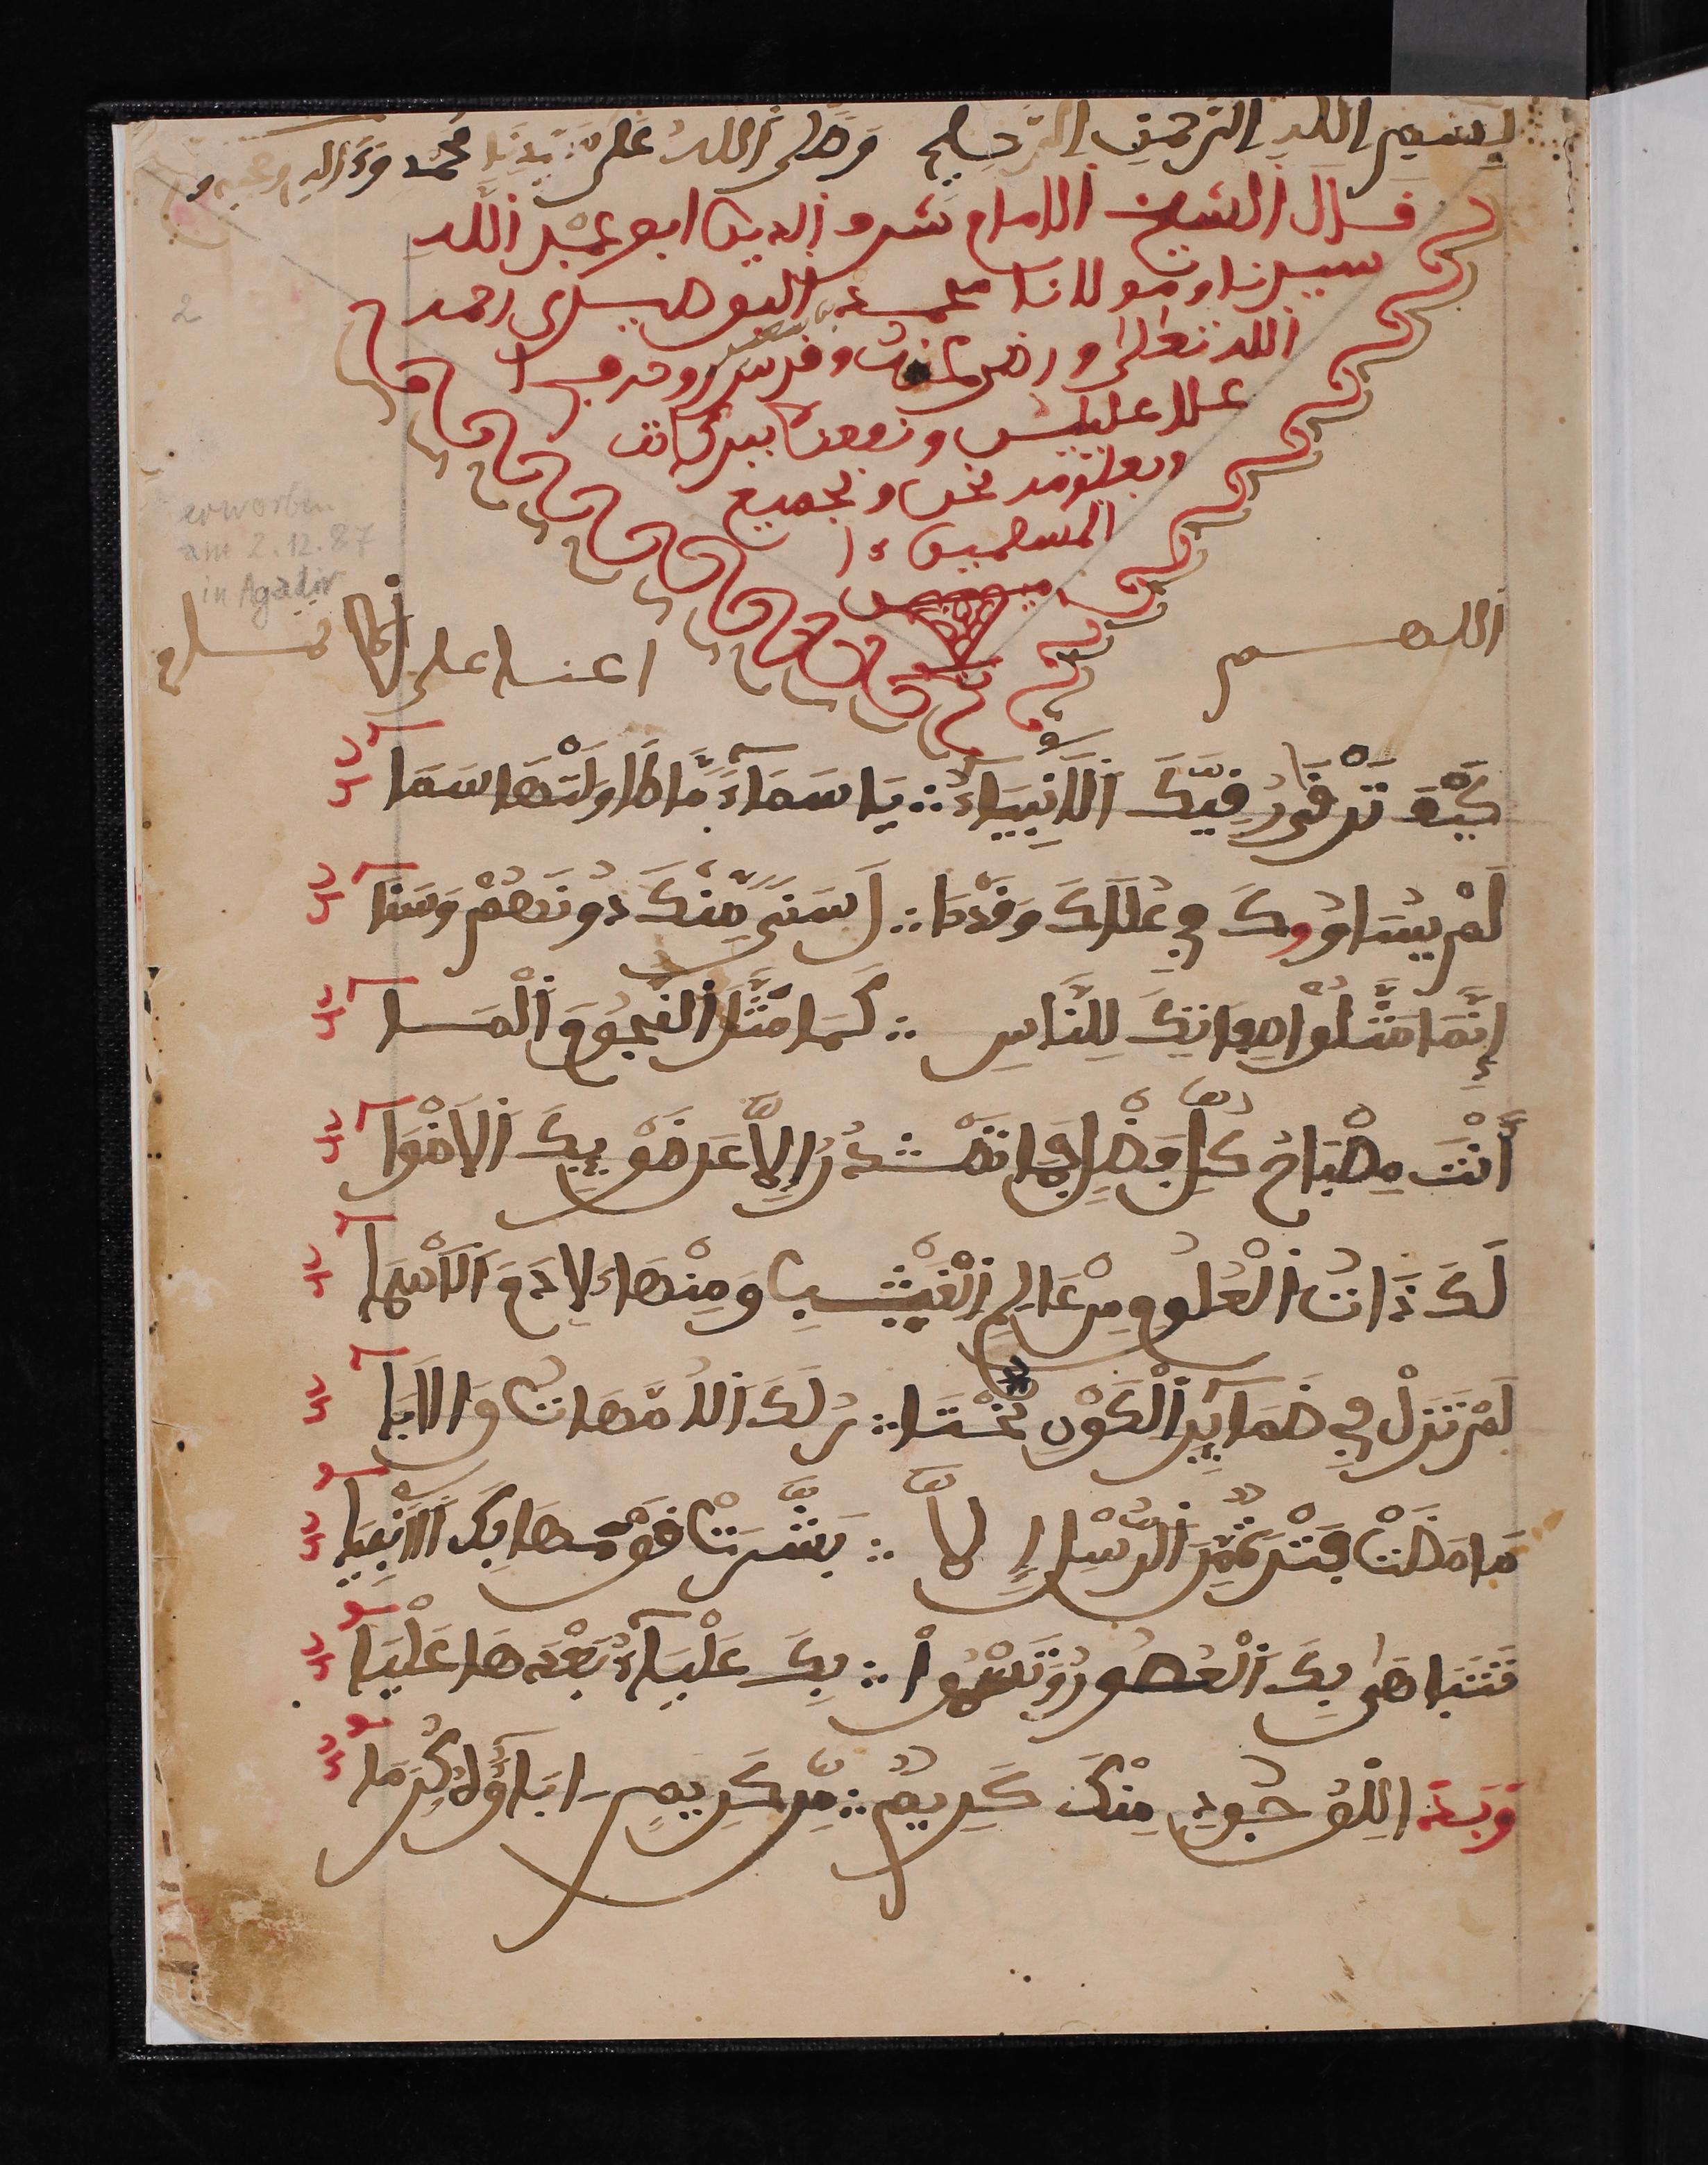 بسم الله الرحمن الرحيم وصلى الله على سيدنا محمد وءاله وصحبه
قال الشيخ الامام شرف الدين ابو عبد الله
سيدنا ومولانا محمد البوصيري رحمه
الله تعلى ورضي عنه وقدس روحه في ا
على عليين ونفعنا ببركاته
وبعلومه نحن وجميع
المسلمين ءا
ميـن
2
erworben
am 2.12.87
in Agadir
اللهم اعنا على
كَيْفَ تَرْقَى رُقِيَّكَ اَلَانْبِيَاءُ ∴ يَا سَمَاءً مَّا طَاوَلَتْهَا سَمَا
لَمْ يُسَاوُوكَ فِي عُلَاكَ وَقَدْ حَا ∴ لَ سَنىً مِّنْكَ دُونَهُمْ وَسَنَا
إِنَّمَا مَثَّلُواْ صِفَاتِكَ لِلنَّاسِ ∴ كَمَا مَثَّلَ اَلنُّجُومَ اَلْمَـا
أَنْتَ مِصْبَاحُ كُلِّ فَضْلٍ فَمَا تَصْـدُرُ إِلَّا عَن ضَوْئِكَ اَلَاضْوَا
لَكَ ذَاتُ اَلْعُلُومِ مِنْ عَالِمِ اِلْغَيْـبِ وَمِنْهَا لِادَمَ اَلَاسْمَا
لَمْ تَزَلْ فِي ضَمَائِرِ اِلْكَوْنِ تُخْتَا ∴ رُ لَكَ اَلُامَّهَاتُ وَالَابَا
مَا مَضَتْ فَتْرَةٌ مِّنَ اَلرُّسْلِ إِلَّا ∴ بَشَّرَتْ قَوْمَهَا بِكَ اَلَانْبِيَا
تَتَبَاهَى بِكَ اَلْعُصُورُ وَتَسْمُواْ ∴ بِكَ عَلْيَاءٌ بَعْدَهَا عَلْيَا
وَبَدَا لِلْوُجُودِ مِنْكَ كَرِيمٌ ∴ مِّن كَرِيمٍ ابَاؤُهُ كُرَمَا